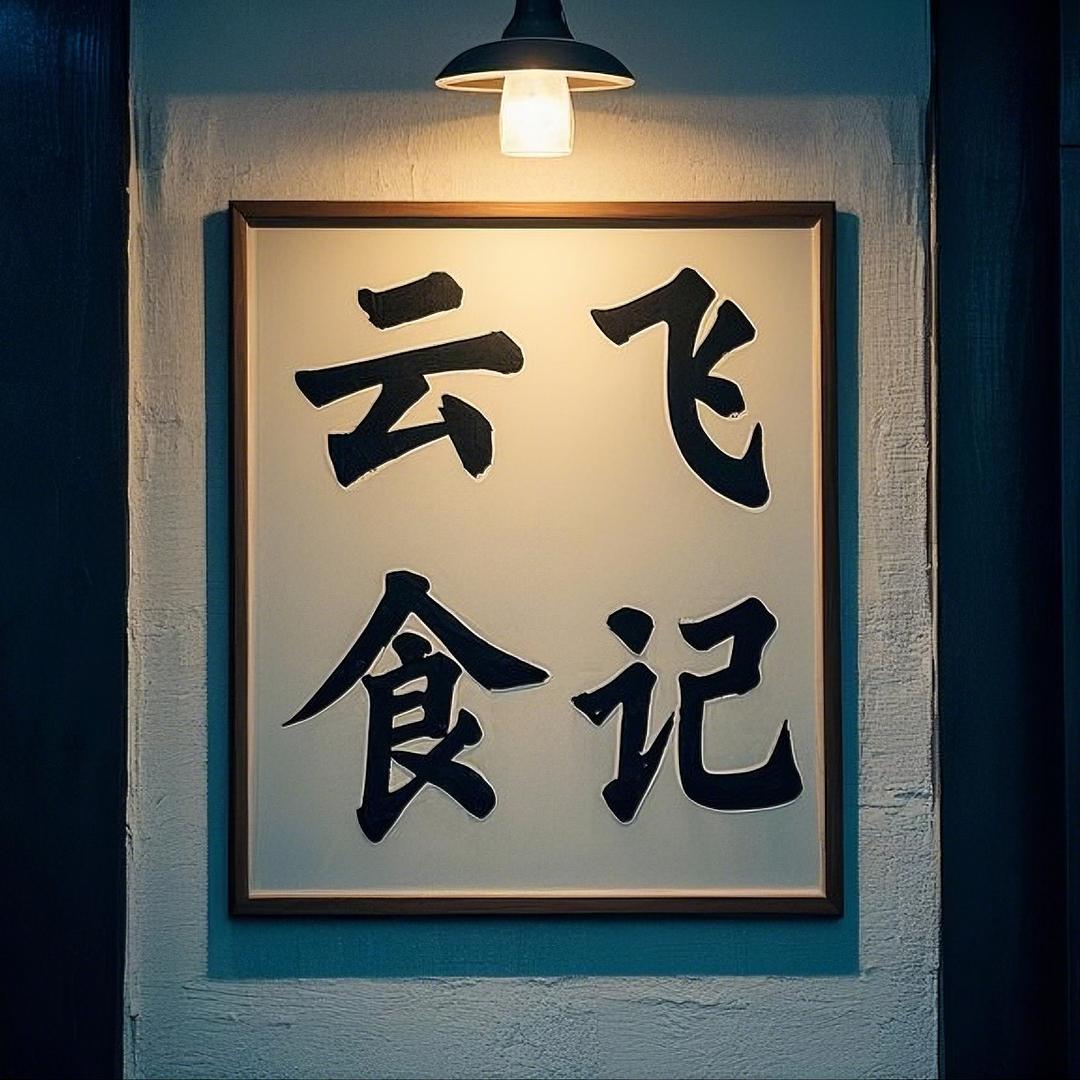 云飞
食记